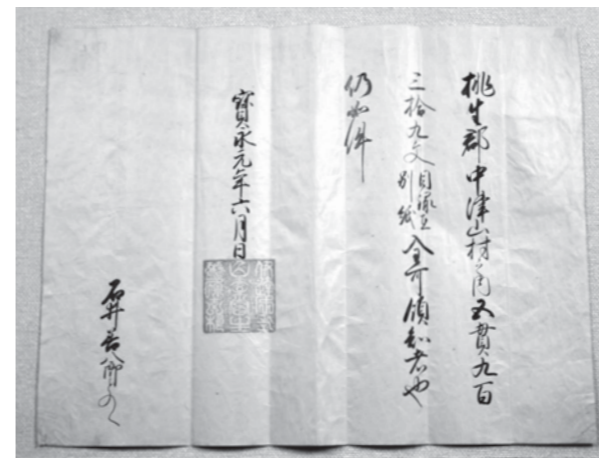 桃生郡中津山村之内五貫九百
三拾九文目録在別紙全可領知者也
仍如件
寳永元年六月日
石井